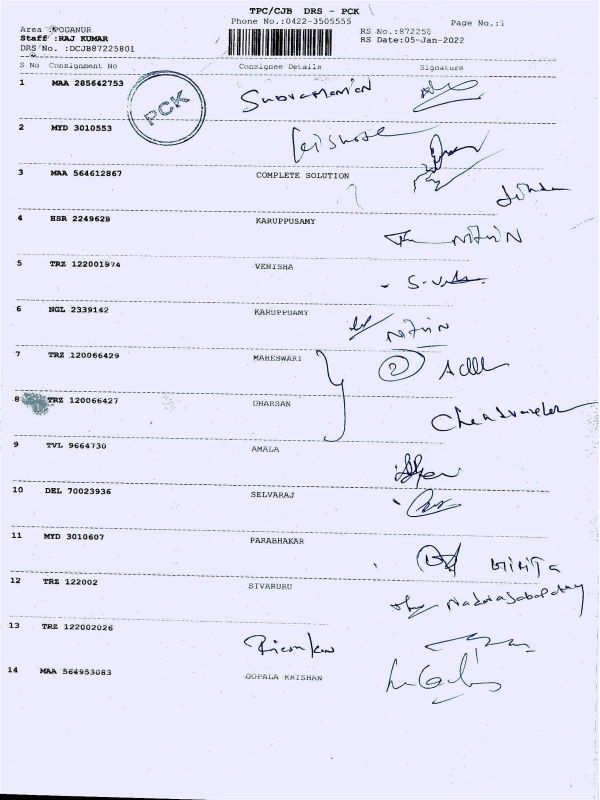 TPC/CJB DRS - PCK
Phone No.:0422-3505555
Page No.:1
Area :PODANUR
RS No.:872258
Staff :RAJ KUMAR
RS Date:05-Jan-2022
DRS No. :DCJB87225801
S No Consignment No Consignee Details Signature
1 MAA 285642753 Subramanian
PCK
2 MYD 3010553
3 MAA 564612867 COMPLETE SOLUTION
4 HSR 2249628 KARUPPUSAMY NITHIN
5 TRZ 122001974 VENISHA
6 NGL 2339142 KARUPPUAMY NITHIN
7 TRZ 120066429 MAHESWARI 2
8 TRZ 120066427 DHARSAN
9 TVL 9664730 AMALA
10 DEL 70023936 SELVARAJ
11 MYD 3010607 PARABHAKAR
12 TRZ 122002 SIVARURU
13 TRZ 122002026
14 MAA 564953083 GOPALA KRISHAN